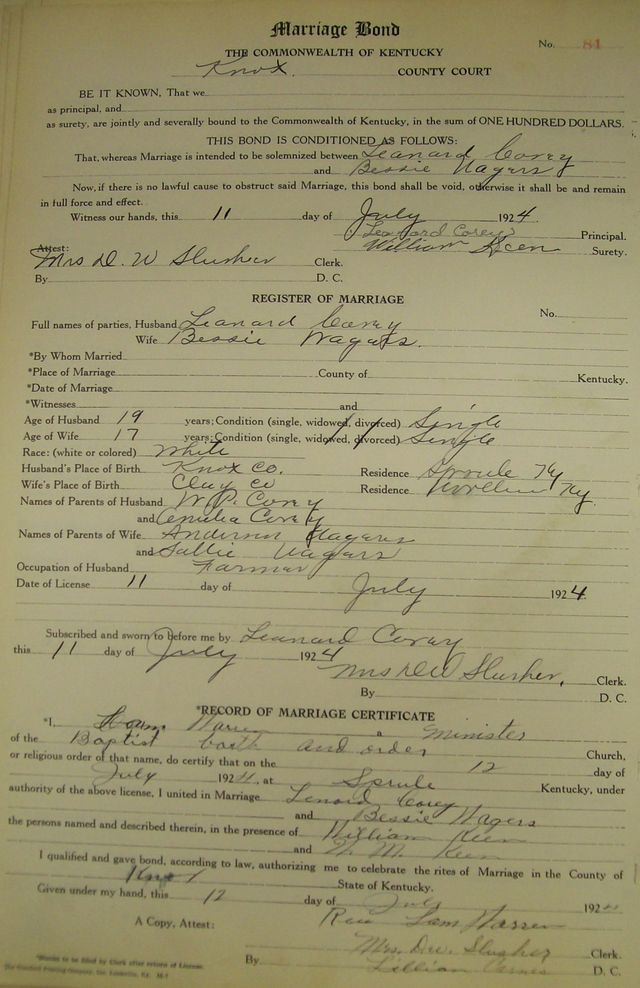 Marriage Bond
No. 84
THE COMMONWEALTH OF KENTUCKY
Knox. COUNTY COURT
BE IT KNOWN, That we
as principal, and
as surety, are jointly and severally bound to the Commonwealth of Kentucky, in the sum of ONE HUNDRED DOLLARS.
THIS BOND IS CONDITIONED AS FOLLOWS:
That, whereas Marriage is intended to be solemnized between Leanard Corey
and Bessie Wagers
Now, if there is no lawful cause to obstruct said Marriage, this bond shall be void, otherwise it shall be and remain
in full force and effect.
Witness our hands, this 11 day of July 1924.
Leonard Corey Principal.
William Keen Surety.
Attest:
Mrs D. W Slusher Clerk.
By D. C.
REGISTER OF MARRIAGE
No.
Full names of parties, Husband Leanard Corey
Wife Bessie Wagers.
*By Whom Married
*Place of Marriage County of Kentucky.
*Date of Marriage
*Witnesses and
Age of Husband 19 years; Condition (single, widowed, divorced) Single
Age of Wife 17 years; Condition (single, widowed, divorced) Single
Race: (white or colored) White
Husband's Place of Birth Knox Co. Residence Sproule Ky
Wife's Place of Birth Clay Co Residence Ky
Names of Parents of Husband W. P. Corey
and Corey
Names of Parents of Wife Anderson Wagers
and Sallie Wagers
Occupation of Husband Farmer
Date of License 11 day of July 1924
Subscribed and sworn to before me by Leanard Corey
this 11 day of July 1924
Mrs D W Slusher, Clerk.
By D. C.
*RECORD OF MARRIAGE CERTIFICATE
*I, Sam Warren a Minister
of the Baptist faith and order Church,
or religious order of that name, do certify that on the 12 day of
July 1924, at Sprule Kentucky, under
authority of the above license, I united in Marriage Lenord Corey
and Bessie Wagers
the persons named and described therein, in the presence of William Keen
and M. Keen
I qualified and gave bond, according to law, authorizing me to celebrate the rites of Marriage in the County of
Knox State of Kentucky.
Given under my hand, this 12 day of July 1924
Rev Sam Warren
A Copy, Attest:
Mrs. D.W. Slusher Clerk.
By Lillian D. C.
*Blanks to be filled by Clerk after return of License.